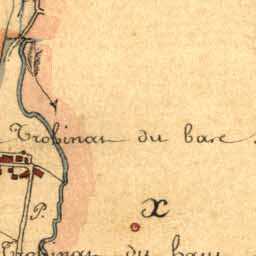 Trobinas du bare
P.
x
Trobinas du haut